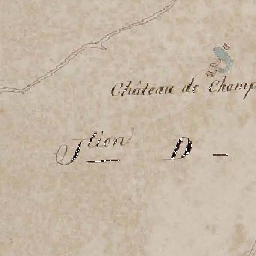 Château de Champ
Son D -